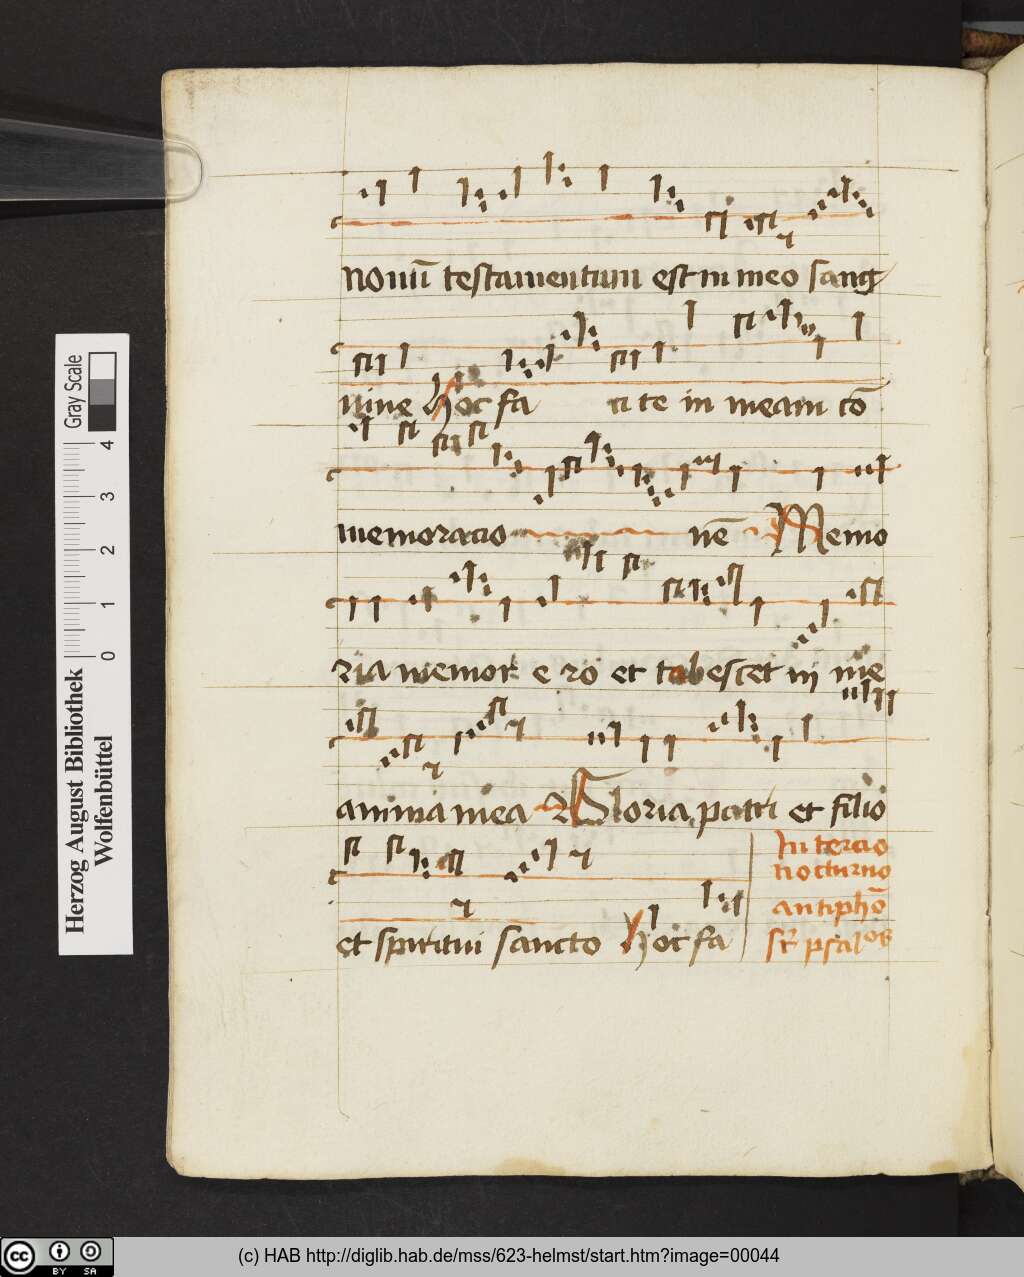 nouū testamentum est in meo sang
nine hoc fa ci te in meam cō
memoracio nē Memo
ria memor e ro et tabescet in me
anima mea Gloria patri et filio
et spiritui sancto hoc fa
In tercio
nocturno
antiphō
sr̄ psalos
Gray Scale
4
3
2
1
0
Herzog August Bibliothek
Wolfenbüttel
cc BY SA
(c) HAB http://diglib.hab.de/mss/623-helmst/start.htm?image=00044